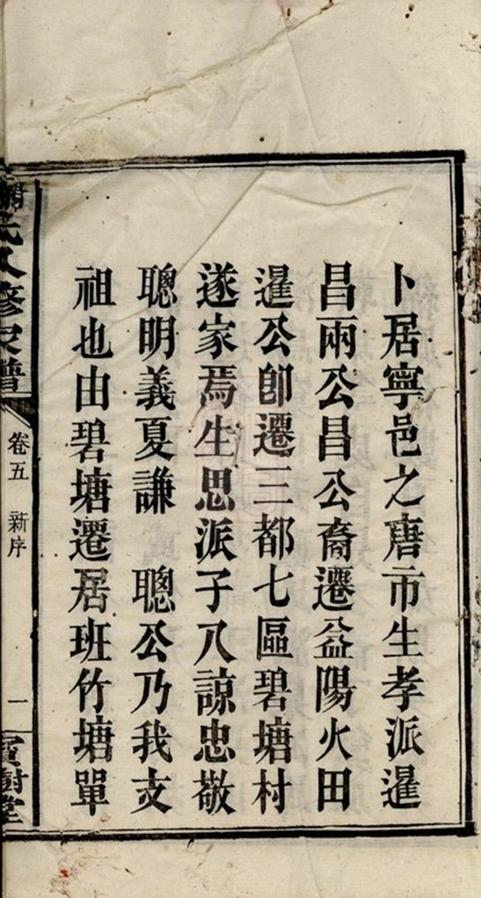 卜居寧邑之唐市生孝派暹
昌兩公昌公裔遷益陽火田
暹公卽遷三都七區碧塘村
遂家焉生思派子八諒忠敬
聰明義夏謙　聰公乃我支
祖也由碧塘遷居班竹塘單
氏八修家譜
卷五　新序
一
寶樹堂